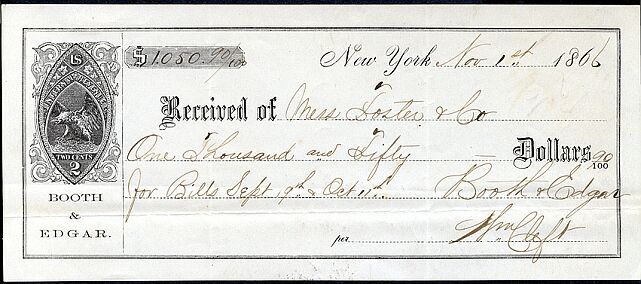 $1050.90/100
New York Nov 1st 1866
Received of Mess Foster & Co
One Thousand and Fifty — Dollars 90/100
for Bills Sept 9th & Oct 11th. Booth & Edgar
per Wm Clift
US
INTERNAL REVENUE
TWO CENTS
2
BOOTH
&
EDGAR.